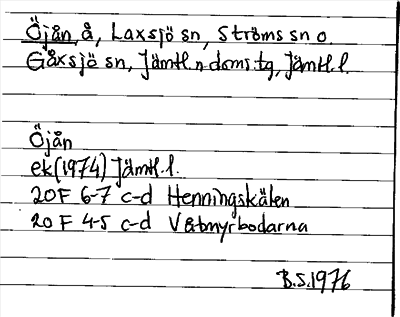 Öjån, å, Laxsjö sn, Ströms sn o.
Gåxsjö sn, Jämtl. n. doms.tg, Jämtl. l.
Öjån
ek (1974) Jämtl. l.
20F 6-7 c-d Henningskälen
20F 4-5 c-d Våtmyrbodarna
B.S. 1976